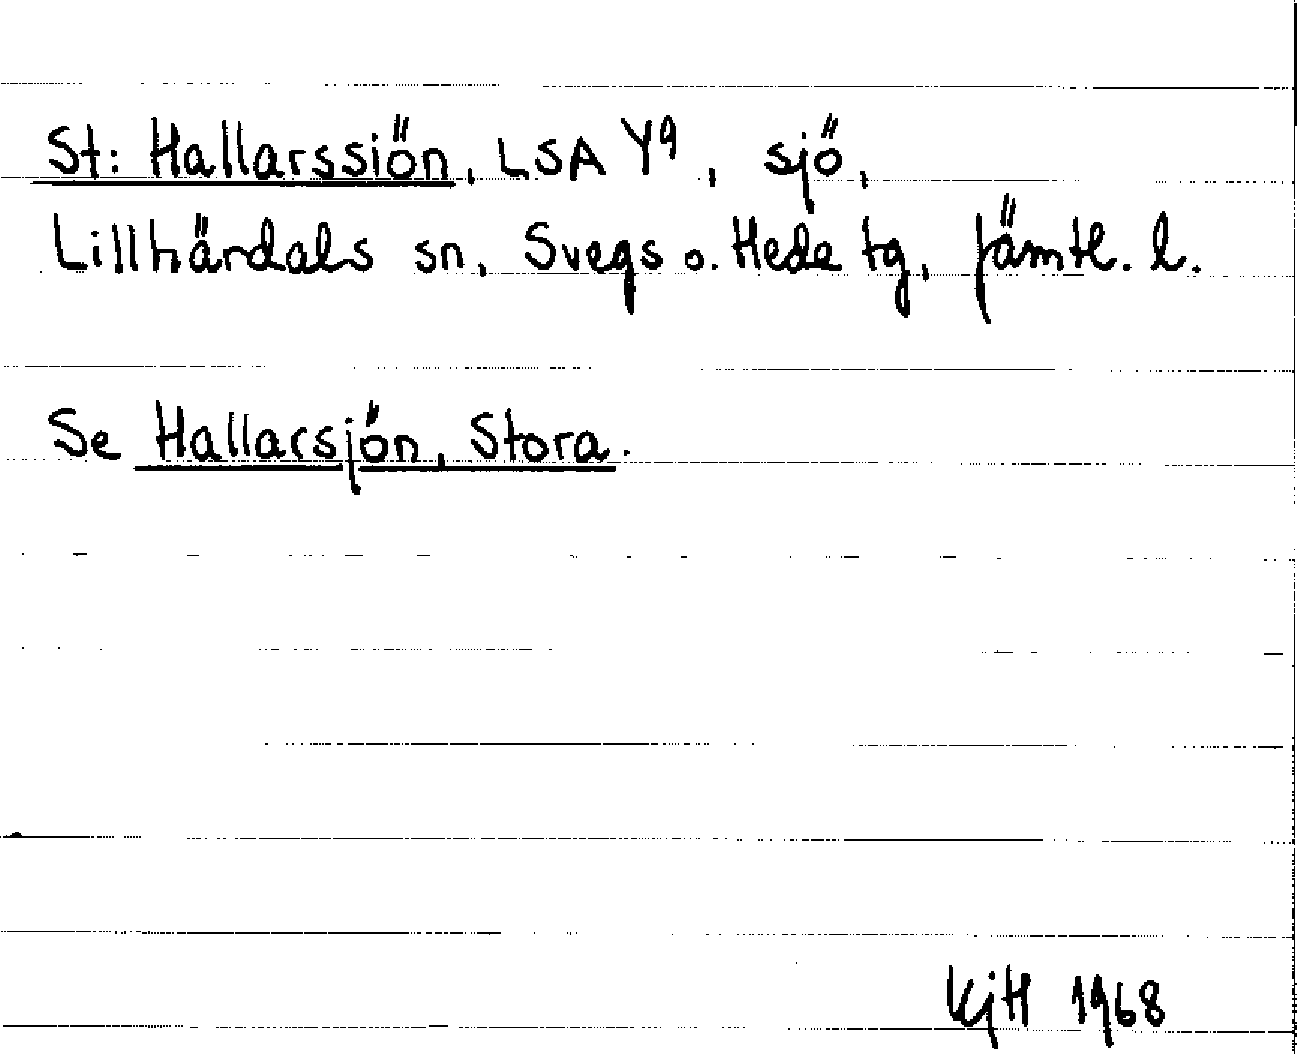 St: Hallarssiön, LSA Y9, sjö,
Lillhärdals sn, Svegs o. Hede tg, Jämtl. l.
Se Hallarsjön, Stora.
KjH 1968